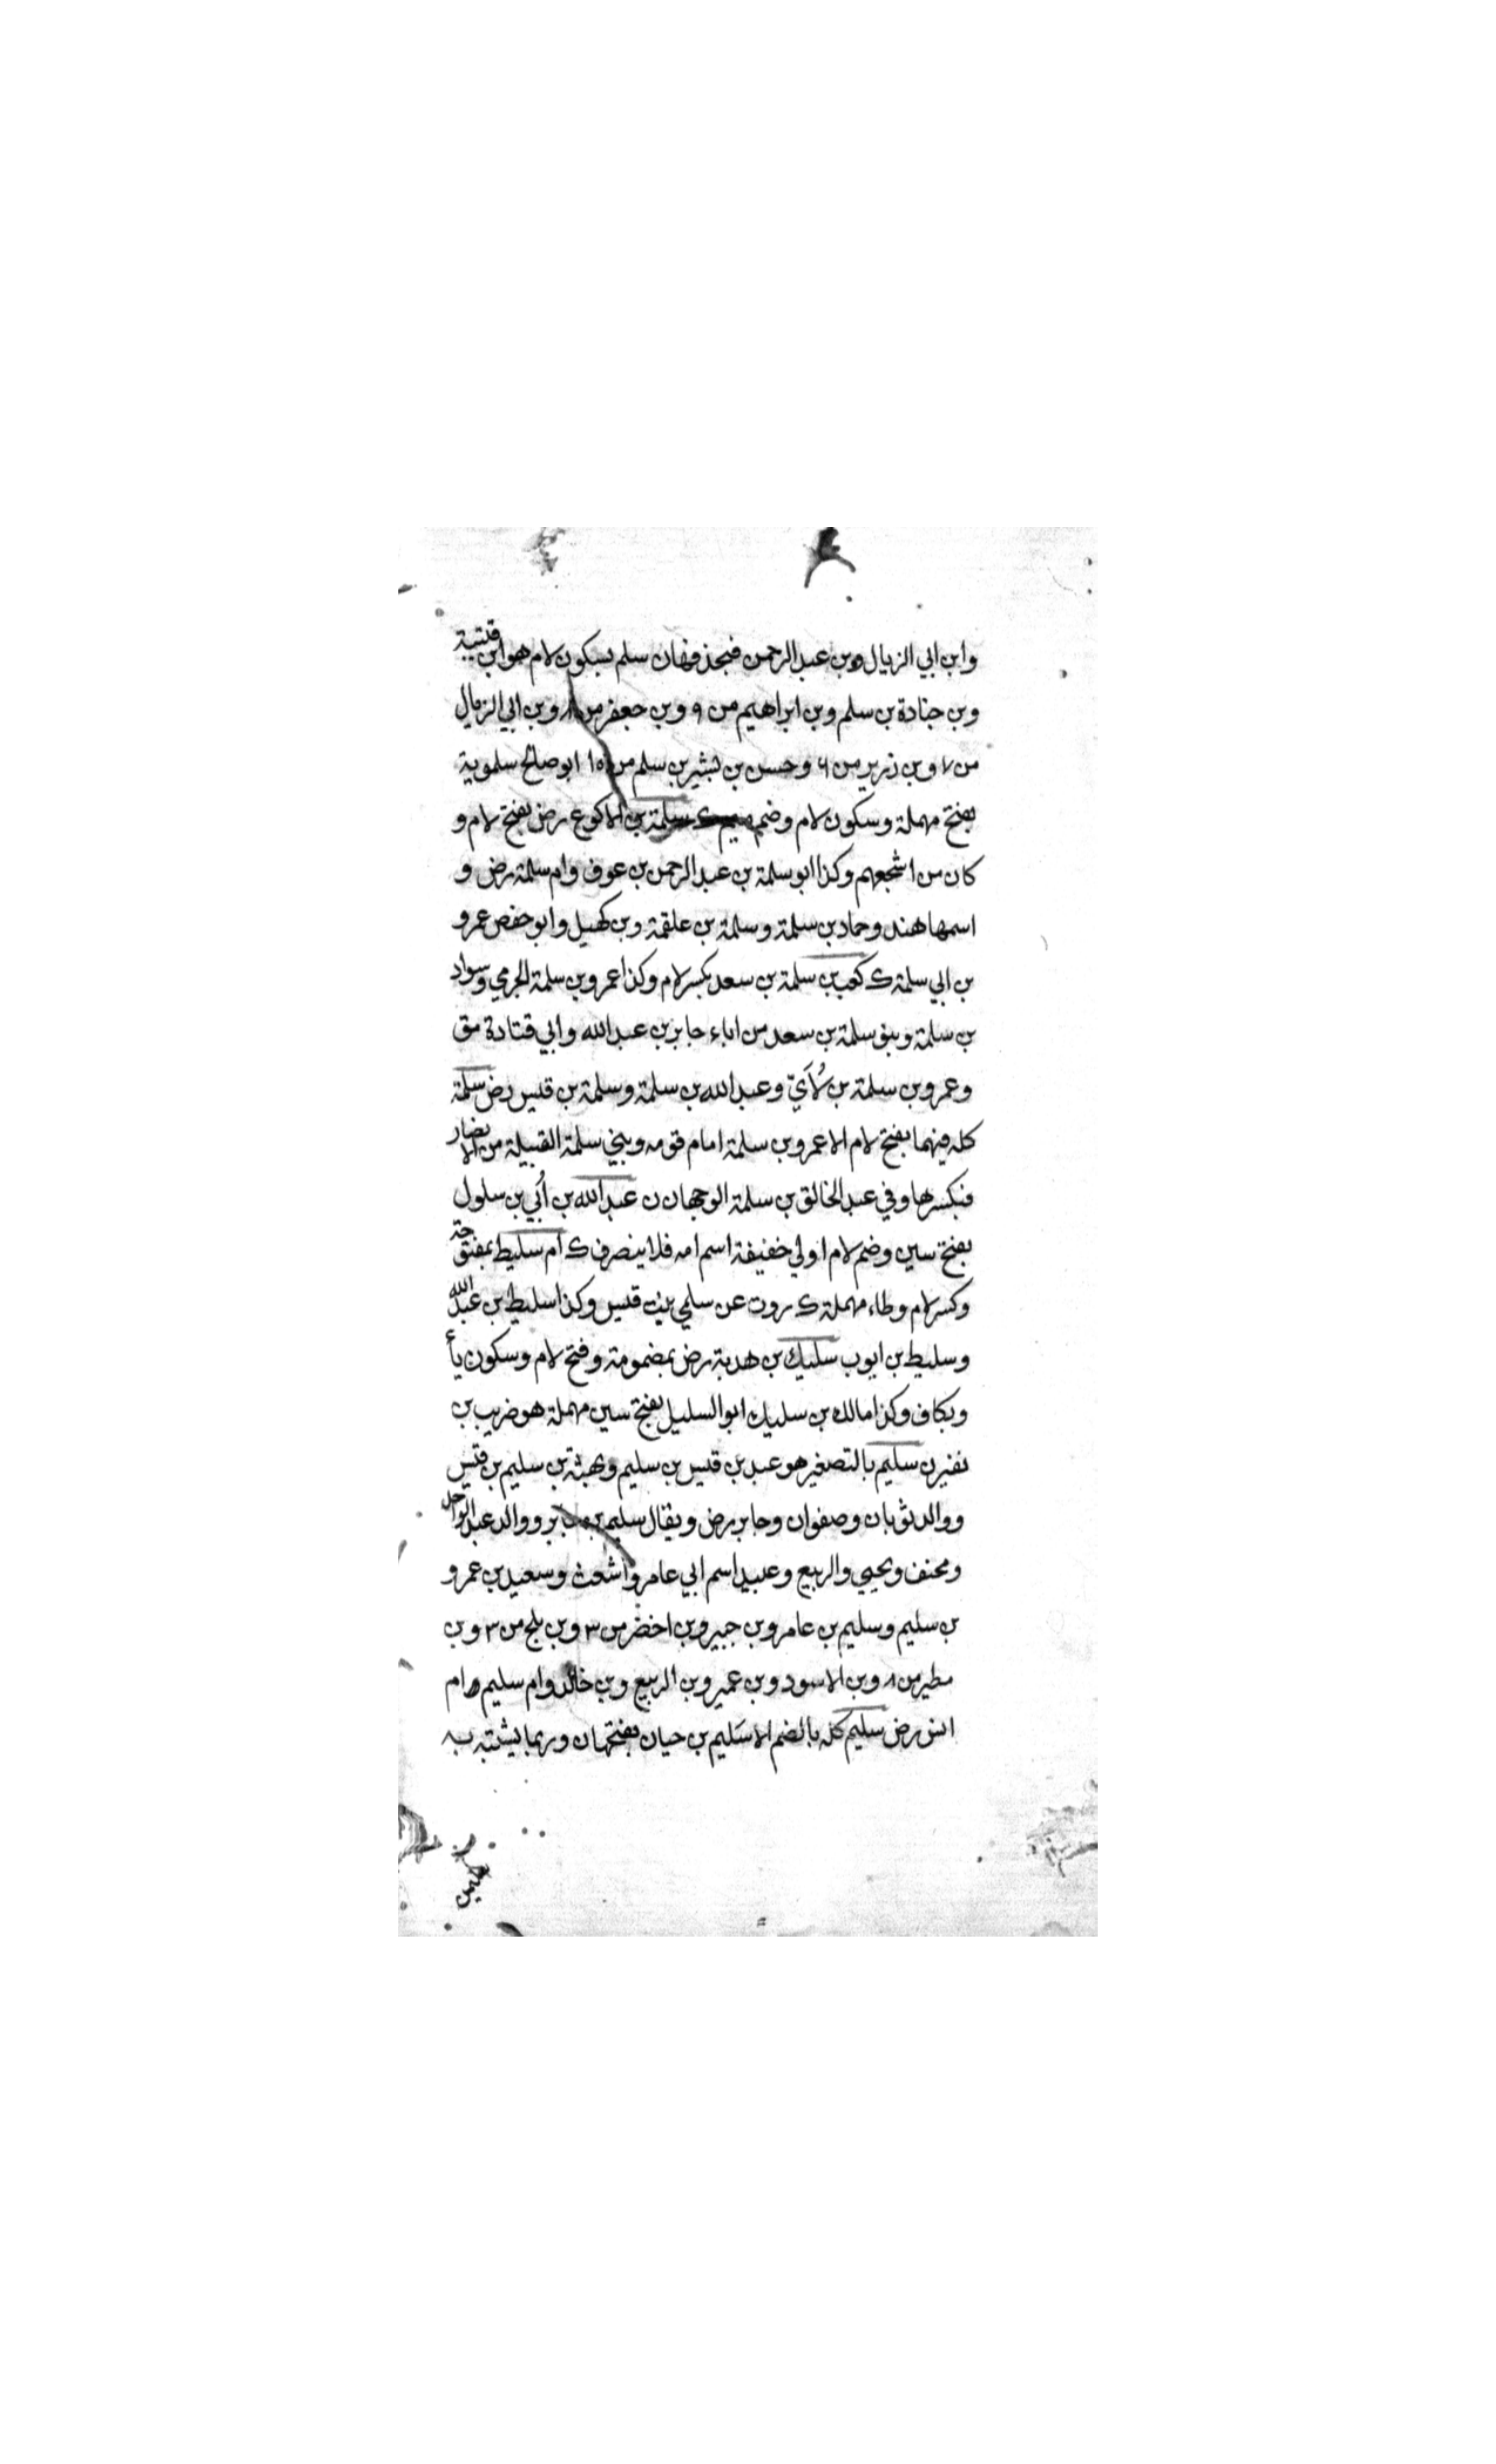 وابن ابي الزيال وبن عبد الرحمن فبحذفهان سلم بسكون لام هو ابن قتيبة
وبن جنادة بن سلم وبن ابراهيم من ٩ وبن جعفر من ٨ وبن ابي الزيال
من ٧ وبن زرير من ٦ وحسن بن بشير بن سلم من ١٥ ابو صالح سلموية
بفتح مهملة وسكون لام وضم ميم ك سلمة بن الاكوع رض بفتح لام و
كان من اشجعهم وكذا ابو سلمة بن عبد الرحمن بن عوف وام سلمة رض و
اسمها هند وحماد بن سلمة وسلمة بن علقمة وبن كهيل وابو حفص عمرو
بن ابي سلمة ك كعب بن سلمة بن سعد بكسر لام وكذا عمرو بن سلمة الجرمي وسواد
بن سلمة وبنو سلمة بن سعد من اباء جابر بن عبد الله وابي قتادة مق
وعمرو بن سلمة بن لُأَيّ وعبد الله بن سلمة وسلمة بن قيس رض سلمة
كله فيهما بفتح لام الا عمرو بن سلمة امام قومه وبني سلمة القبيلة من الانصار
فبكسرها وفي عبد الخالق بن سلمة الوجهان ن عبد الله بن أُبي بن سلول
بفتح سين وضم لام اولي خفيفة اسم امه فلا ينصرف ك ام سليط بمفتوحة
وكسر لام وطاء مهملة ك روت عن سلمي بنت قيس وكذا سليط بن عبد الله
وسليط بن ايوب سليك بن هدبة رض بمضمومة وفتح لام وسكون يأ
وبكاف وكذا مالك بن سليك ابو السليل بفتح سين مهملة هو ضريب بن
نفيرن سليم بالتصغير هو عبد بن قيس بن سليم وبهثة بن سليم بن قيس
ووالد ثوبان وصفوان وجابر رض ويقال سليم بن جابر ووالد عبد الواحد
ومحنف ويحيي والربيع وعبيد اسم ابي عامر واشعث وسعيد بن عمرو
بن سليم وسليم بن عامر وبن جبير وبن اخضر من ٣ وبن بلج من ٣ وبن
مطير من ٨ وبن الاسود وبن عمير وبن الربيع وبن خالد وام سليم وام
انس رض سليم كله بالضم الا سَليم بن حيان بفتحهان وربما يشتبه به